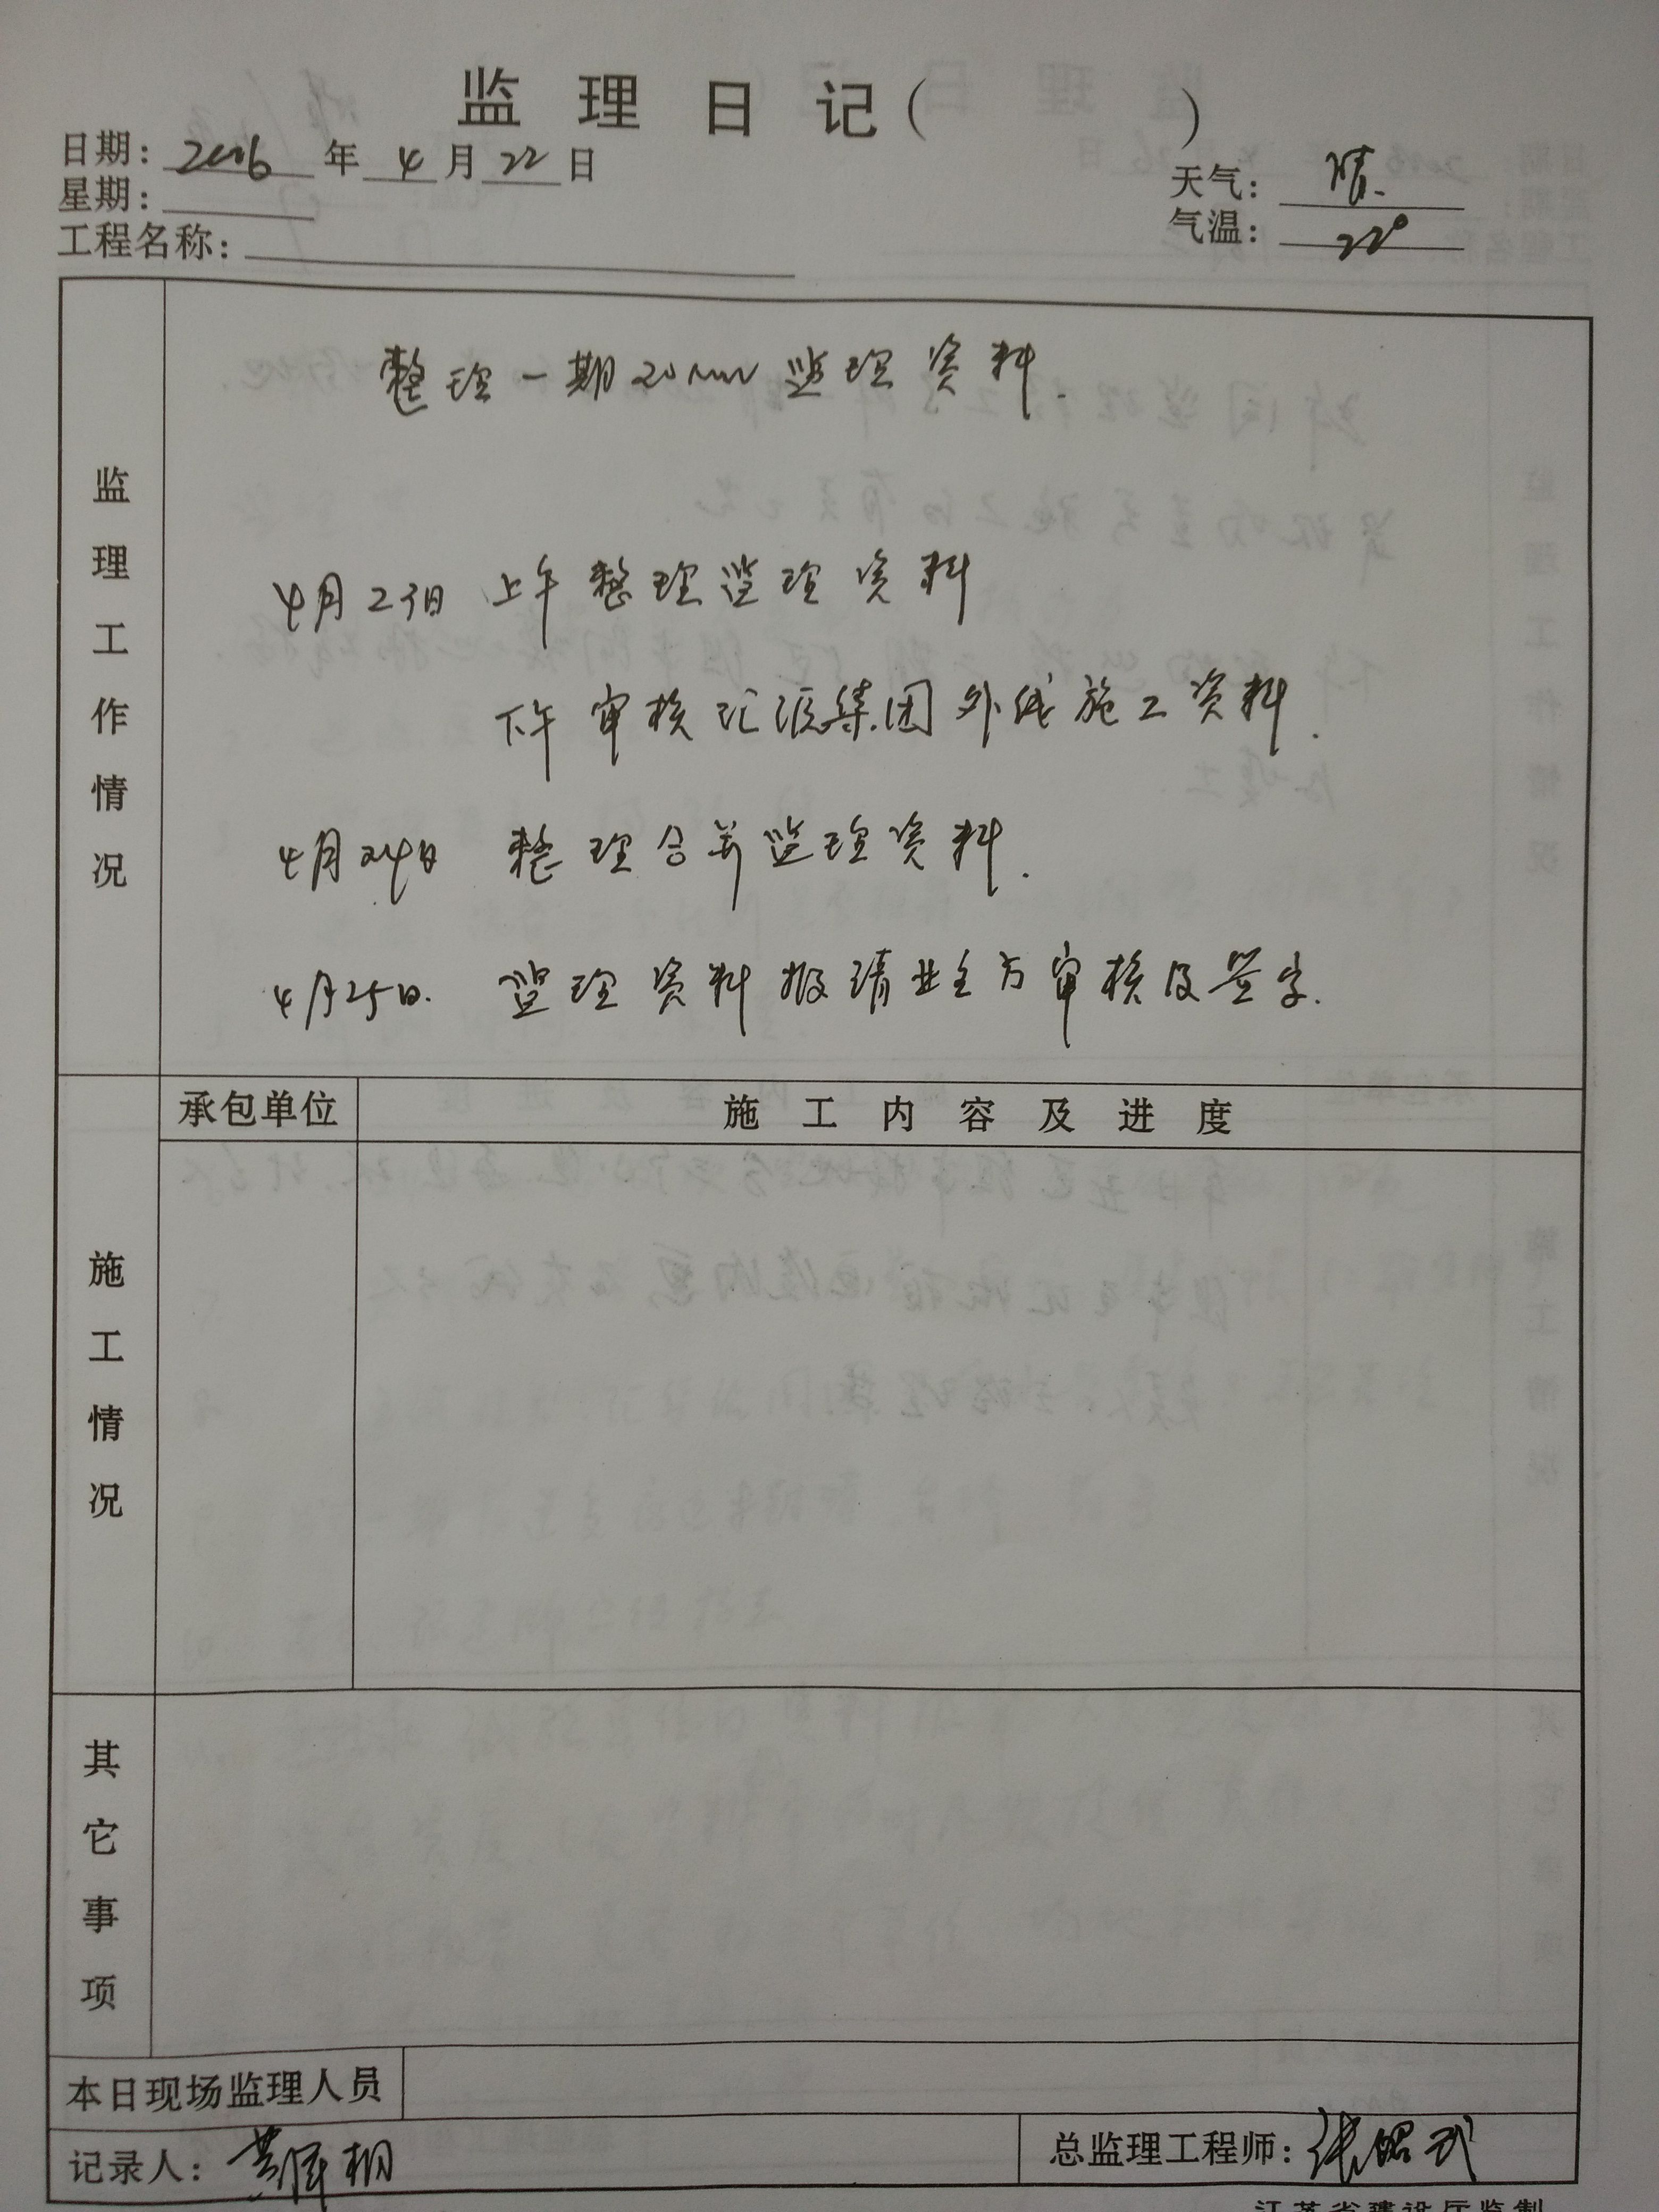 监理日记( )
日期: 2016 年 4 月 22 日
天气: 晴.
星期:
气温: 22°
工程名称:
监理工作情况
整理一期20MW监理资料.
4月23日 上午 整理监理资料
下午 审核汇源集团外线施工资料.
4月24日 整理合并监理资料.
4月25日. 监理资料报请业主方审核及签字.
承包单位 施工内容及进度
施工情况
其它事项
本日现场监理人员
记录人:
总监理工程师: 张昭武
江苏省建设厅监制